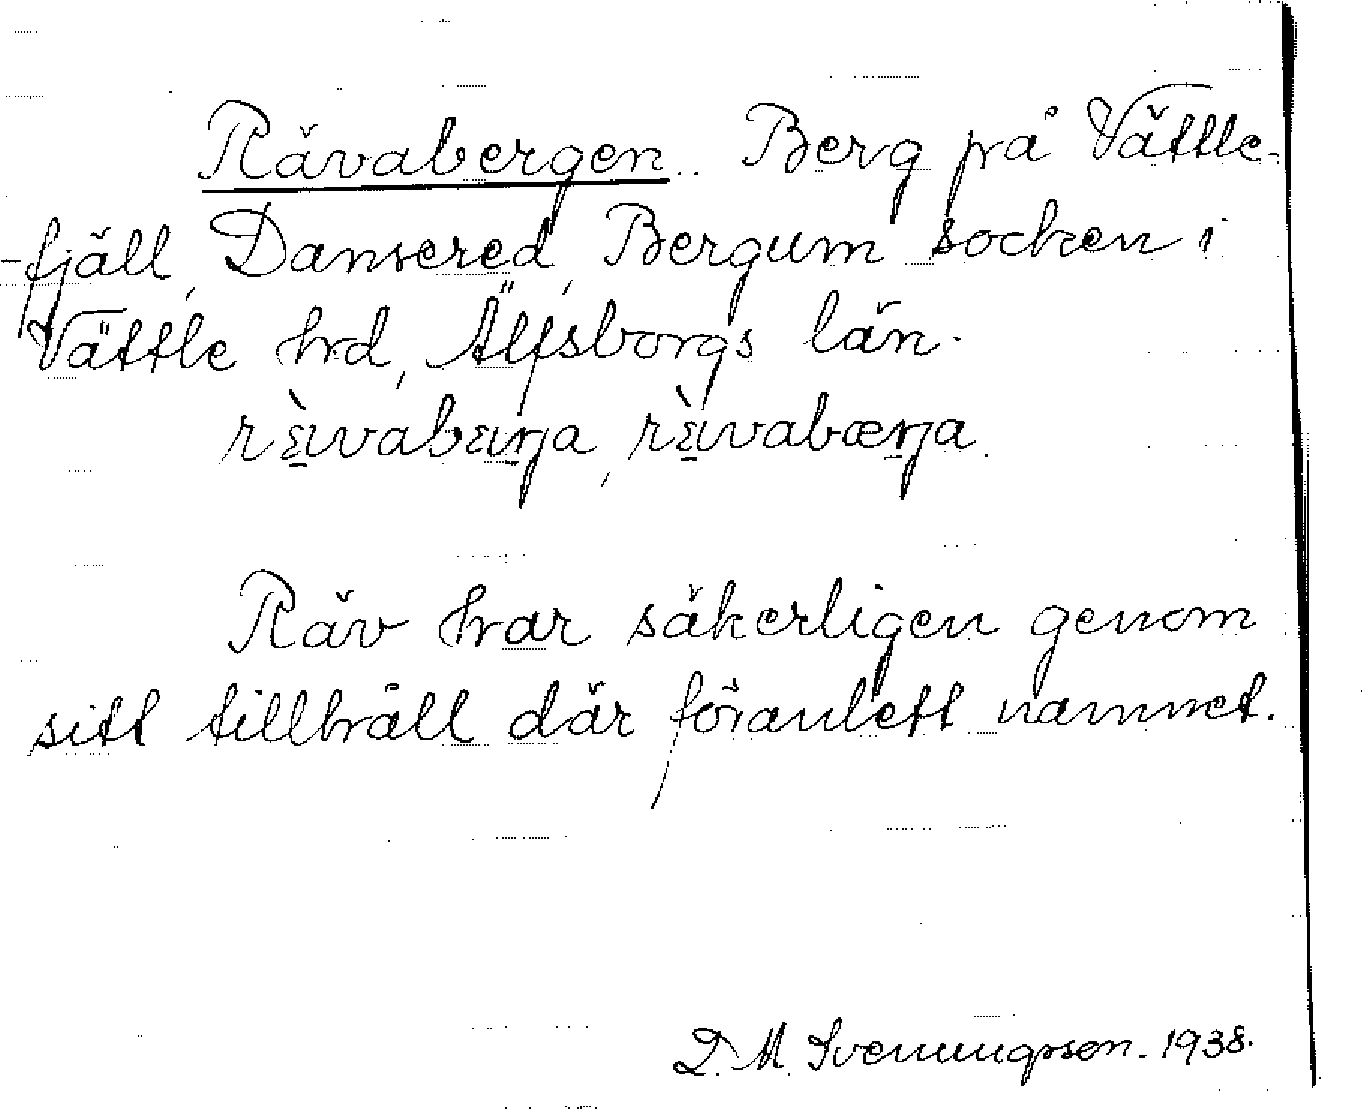 Rävabergen. Berg på Vättle-
-fjäll, Dansered, Bergum socken i
Vättle hrd, Älfsborgs län.
rɛ̀vabɛrja, rɛ̀vabærja.
Räv har säkerligen genom
sitt tillhåll där föranlett namnet.
D. M. Svenungsson. 1938.